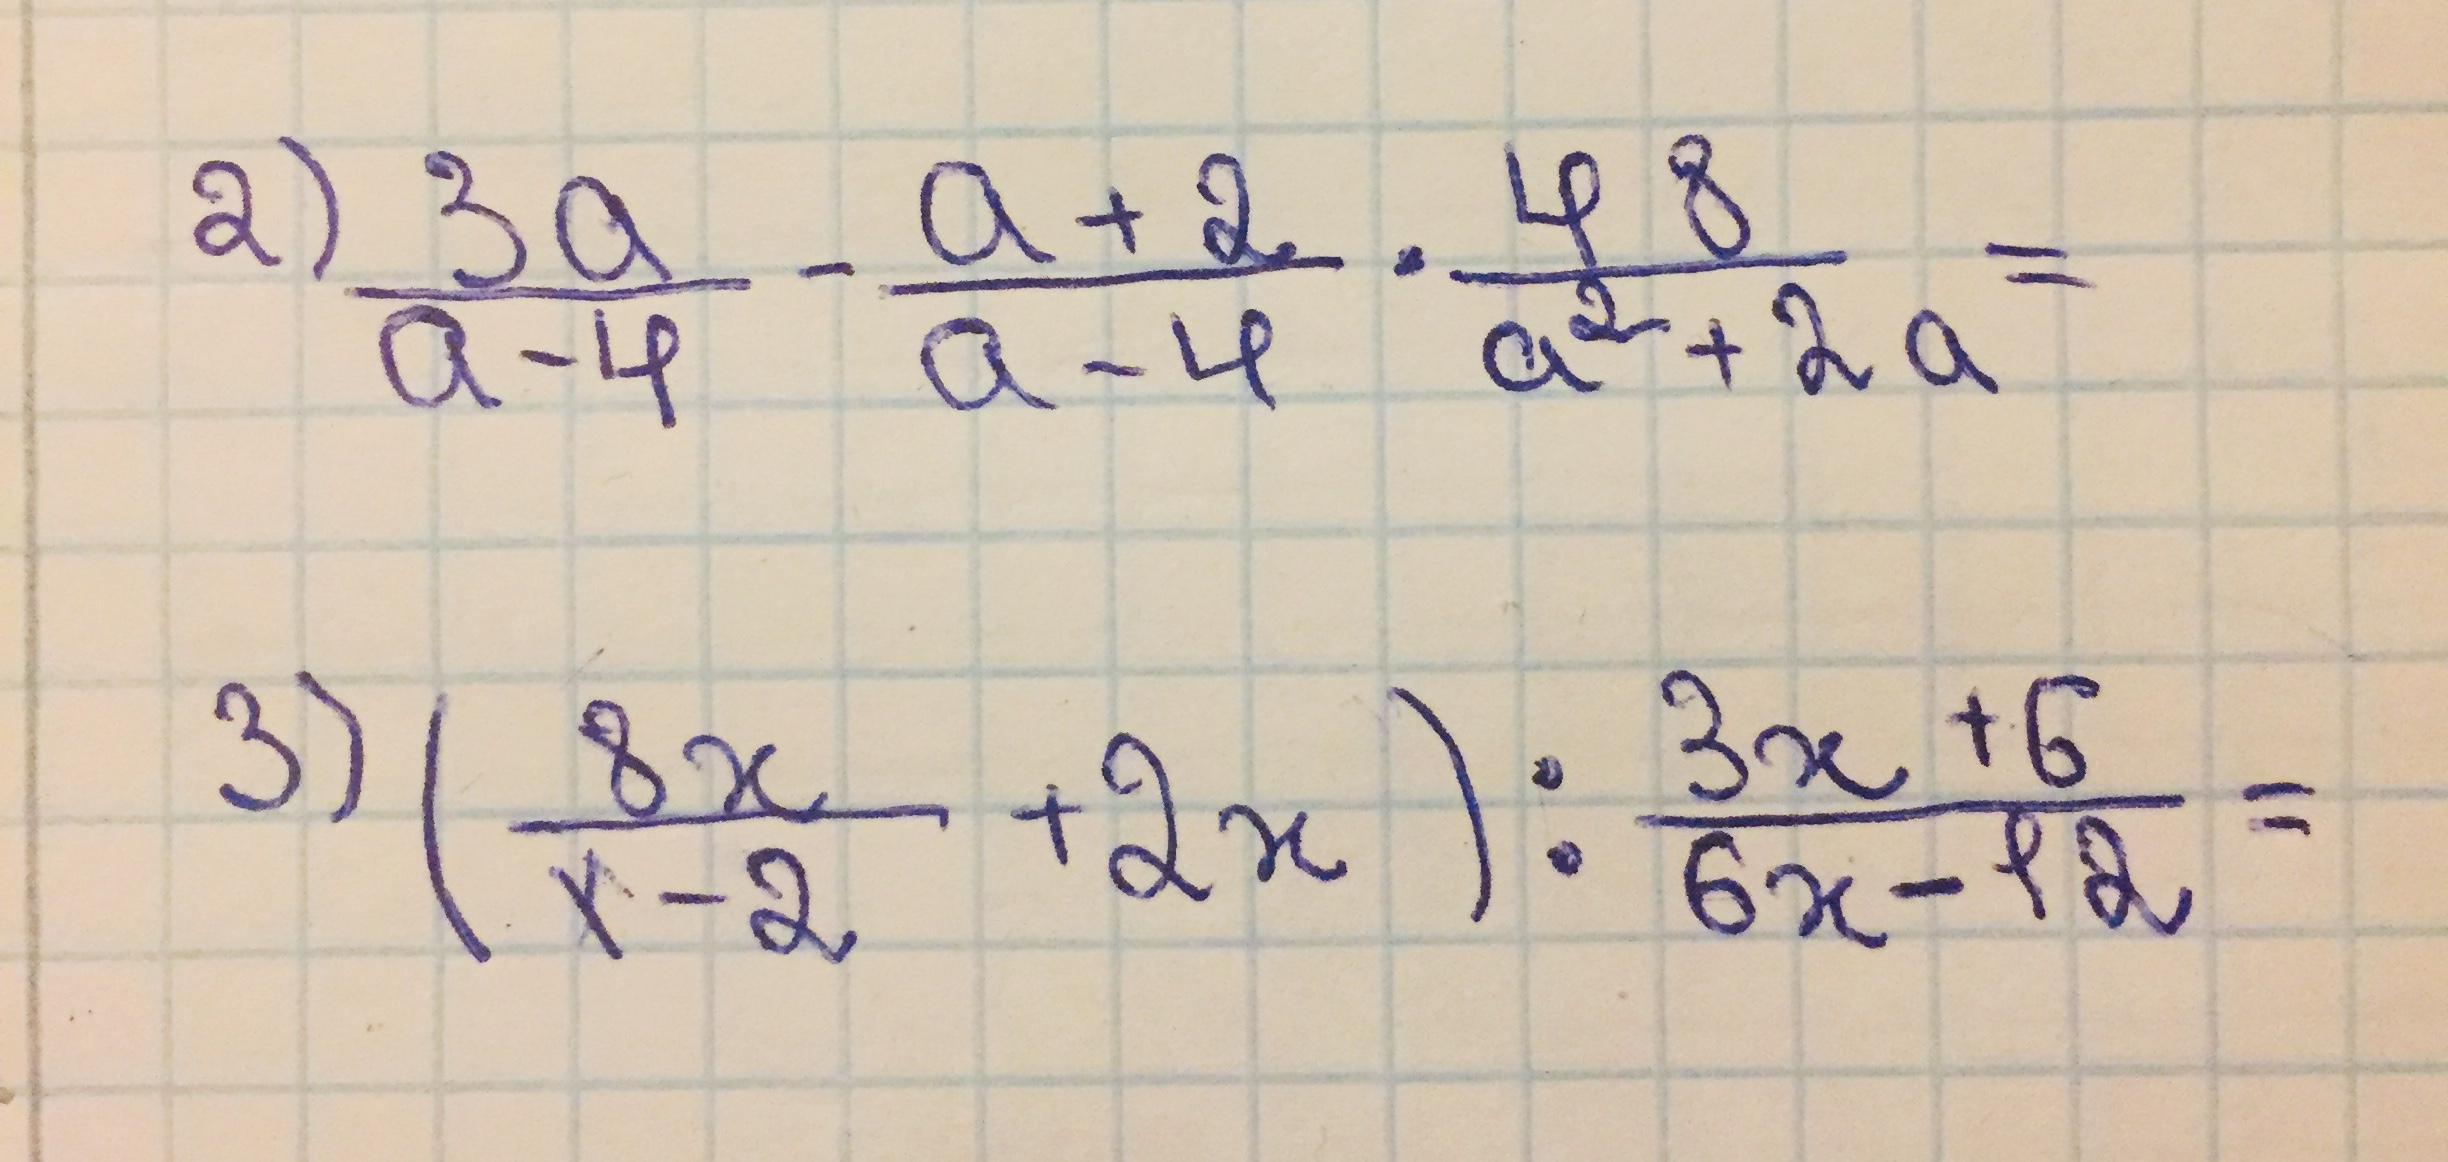 2) \frac{3a}{a-4} - \frac{a+2}{a-4} \cdot \frac{48}{a^2+2a} =
3) ( \frac{8x}{x-2} + 2x ) : \frac{3x+6}{6x-12} =